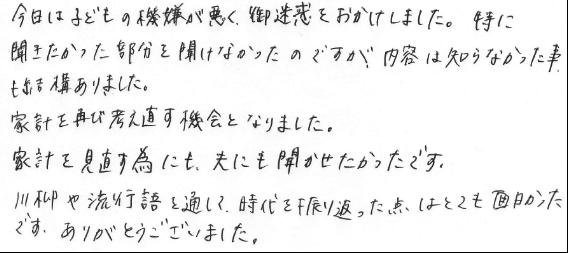 今日は子どもの機嫌が悪く、御迷惑をおかけしました。特に
聞きたかった部分を聞けなかったのですが、内容は知らなかった事
も結構ありました。
家計を再び考え直す機会となりました。
家計を見直す為にも、夫にも聞かせたかったです。
川柳や流行語を通して、時代を振り返った点、はとても面白かった
です。ありがとうございました。